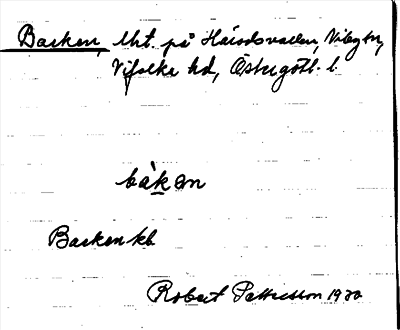 Backen, lht. på Häradsvallen, Viby sn,
Vifolka hd, Östergötl. l.
bàkən
Backen kb
Robert Pettersson 1930